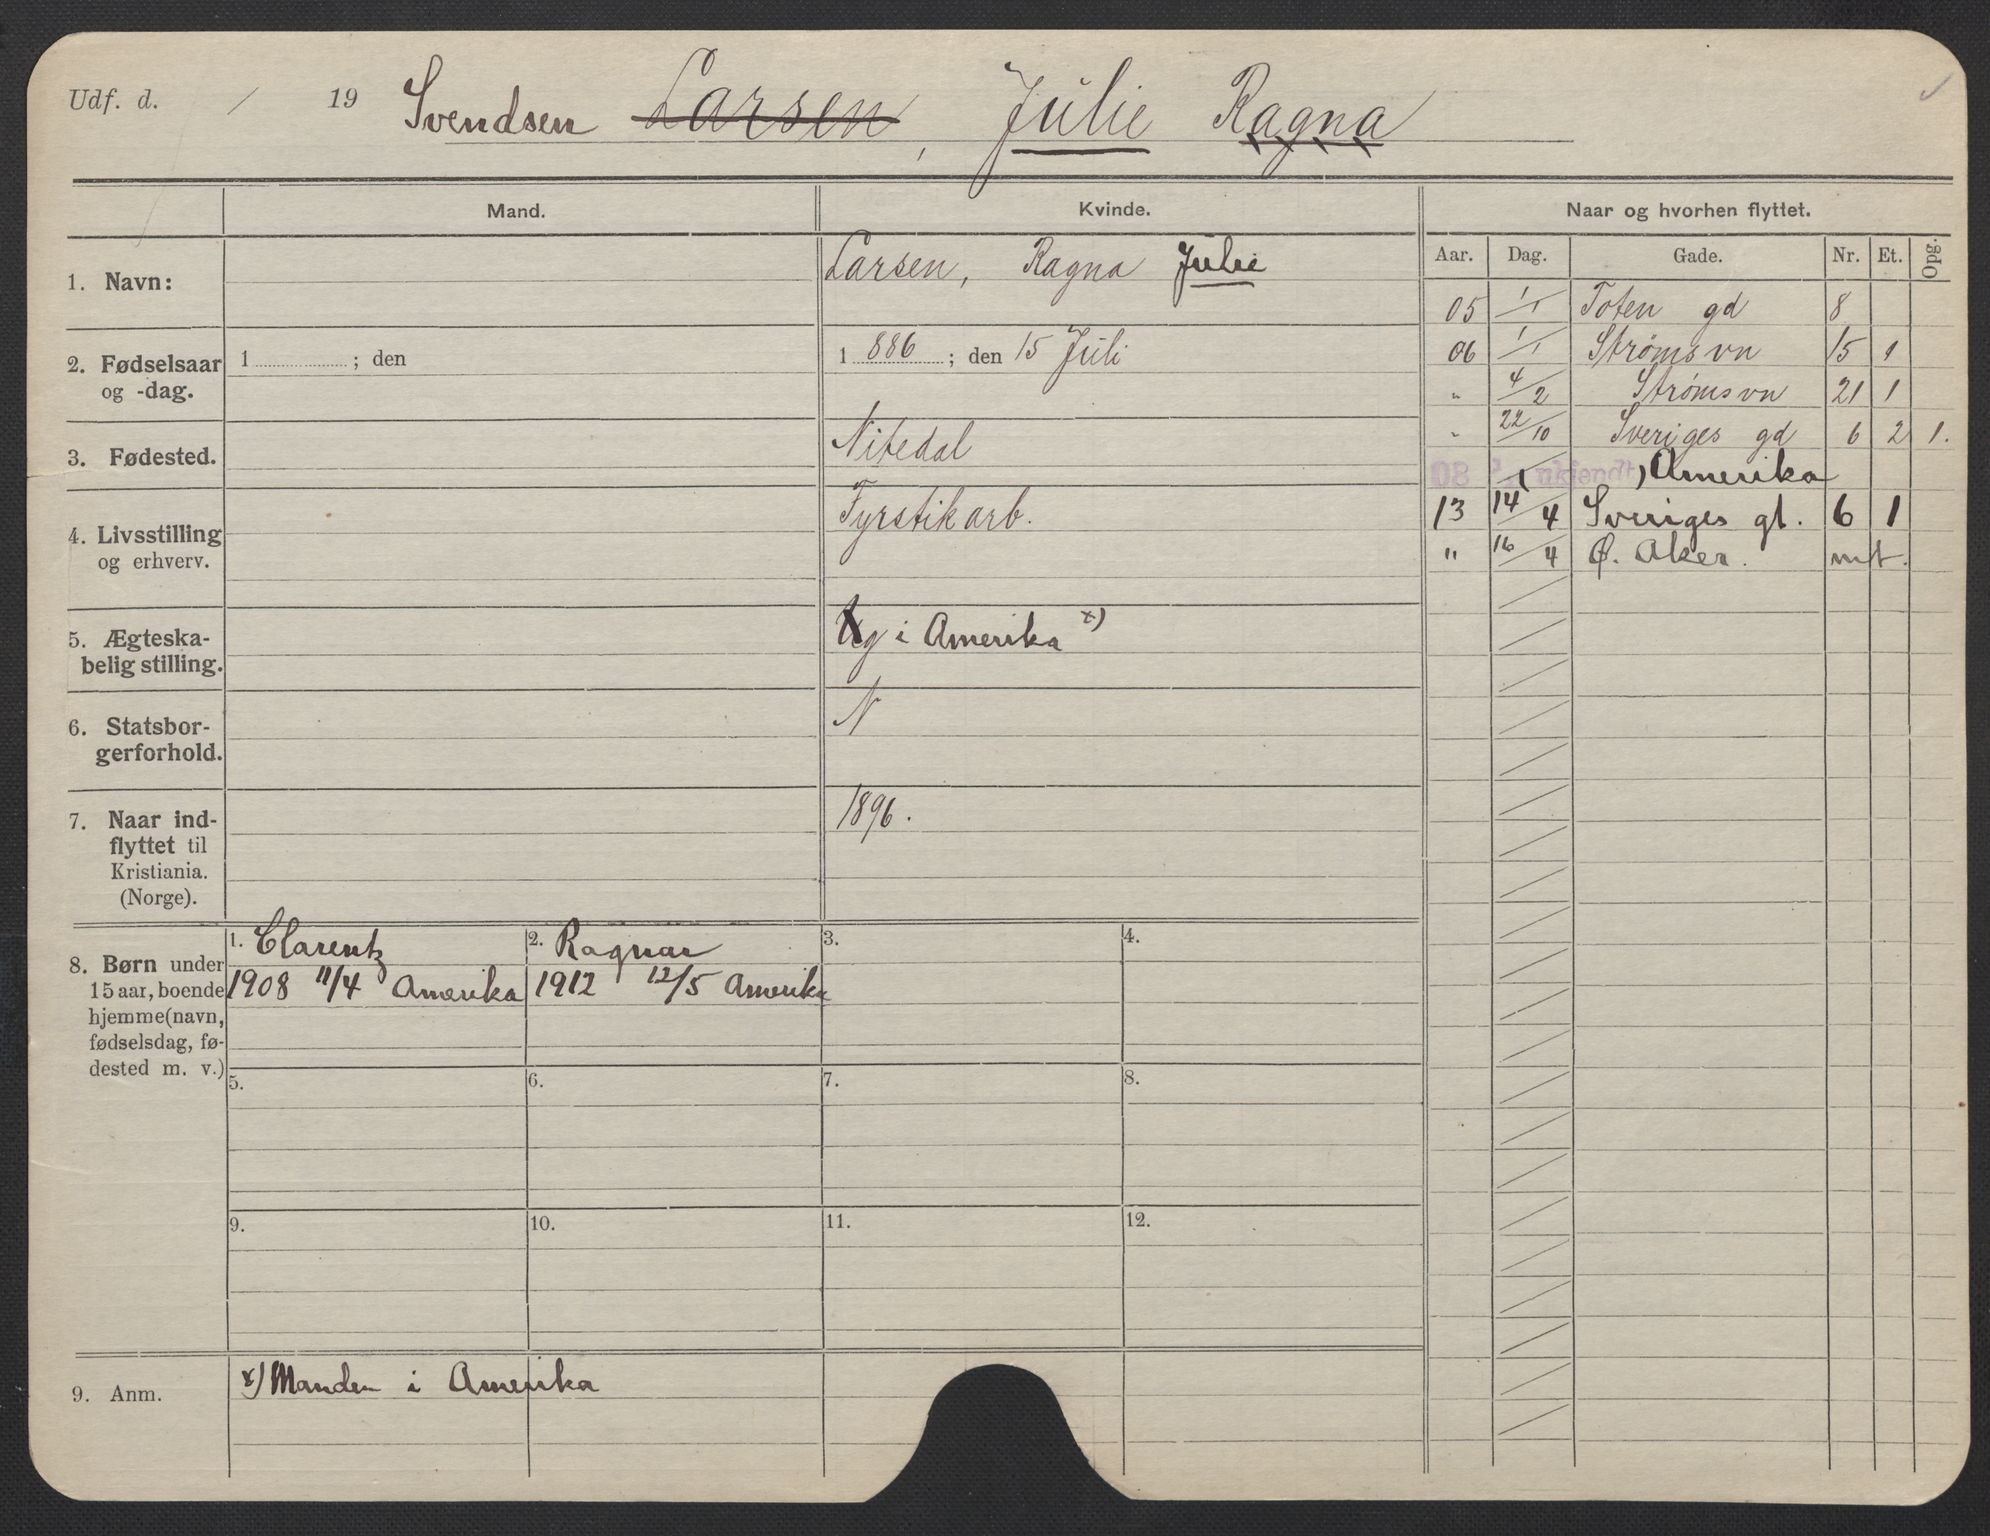 Udf. d. / 19 Svendsen Larsen, Julie Ragna
Mand. Kvinde. Naar og hvorhen flyttet.
Aar. Dag. Gade. Nr. Et. Opg.
1. Navn: Larsen, Ragna Julie
2. Fødselsaar og -dag. 1 ; den 1 886 ; den 15 Juli
3. Fødested. Nitedal
4. Livsstilling og erhverv. Fyrstikarb.
5. Ægteska-
belig stilling. g i Amerika x)
6. Statsbor-
gerforhold. N
7. Naar ind-
flyttet til
Kristiania.
(Norge). 1896.
05 1/1 Toten gd 8
06 1/1 Strømsvn 15 1
" 4/2 Strømsvn 21 1
" 22/10 Sveriges gd 6 2 1.
08 ? (ukjendt) Amerika
13 14/4 Sveriges gt. 6 1
" 16/4 Ø. Aker. mt.
8. Børn under
15 aar, boende
hjemme (navn,
fødselsdag, fø-
dested m. v.)
1. Clarentz
1908 11/4 Amerika
2. Ragnar
1912 12/5 Amerika
3.
4.
5.
6.
7.
8.
9.
10.
11.
12.
9. Anm. x) Manden i Amerika